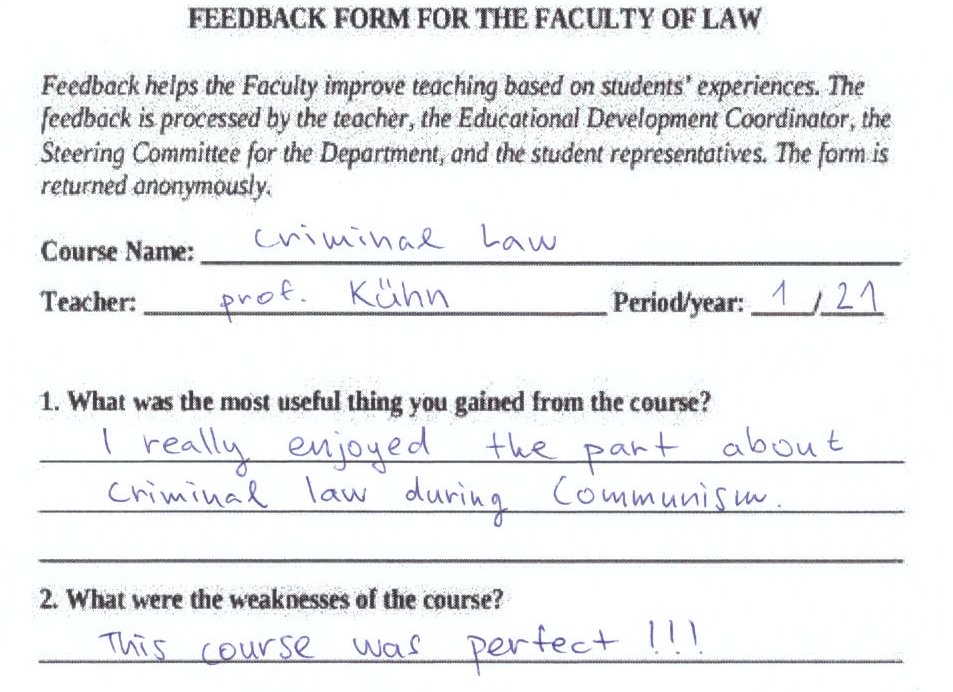 FEEDBACK FORM FOR THE FACULTY OF LAW
Feedback helps the Faculty improve teaching based on students' experiences. The
feedback is processed by the teacher, the Educational Development Coordinator, the
Steering Committee for the Department, and the student representatives. The form is
returned anonymously.
Course Name: Criminal Law
Teacher: prof. Kühn Period/year: 1 / 21
1. What was the most useful thing you gained from the course?
I really enjoyed the part about
criminal law during Communism.
2. What were the weaknesses of the course?
This course was perfect !!!